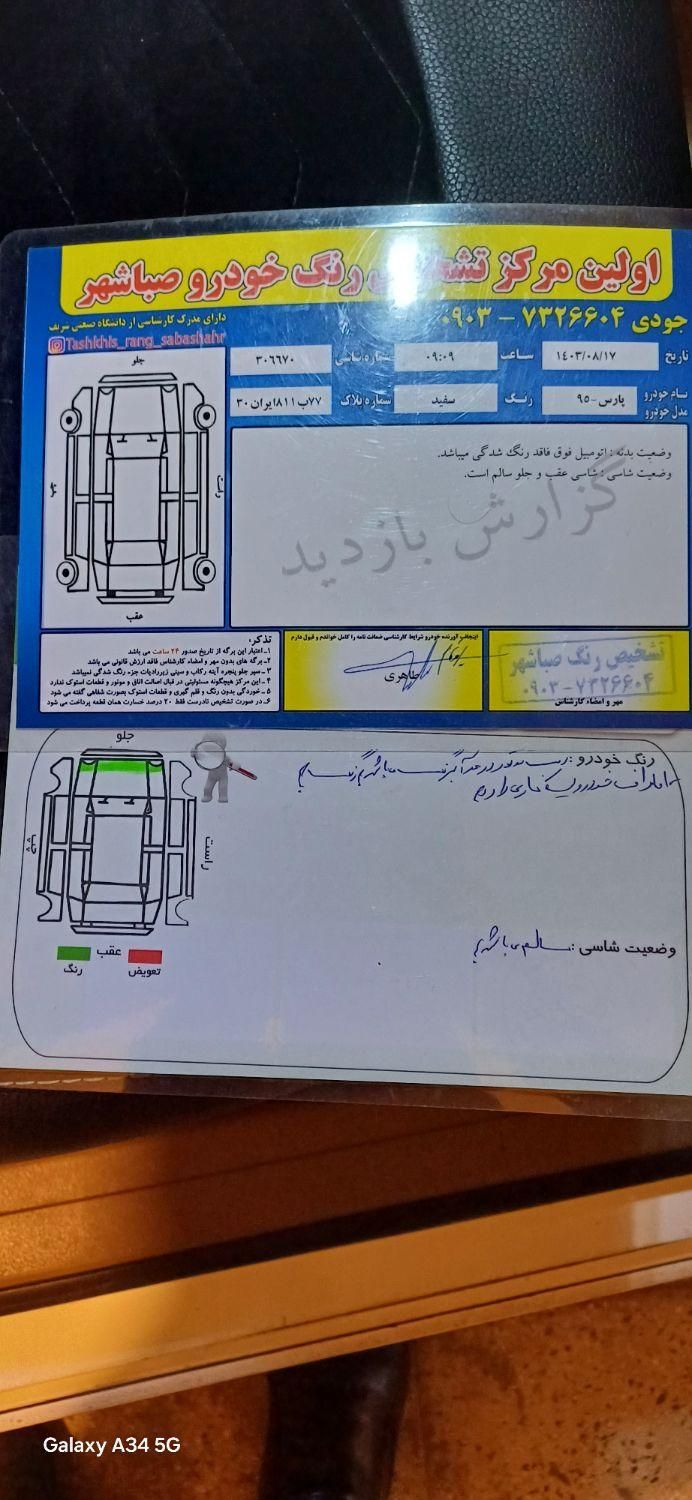 اولین مرکز تشخیص رنگ خودرو صباشهر
جودی ۷۳۲۶۶۰۴ - ۰۹۰۳
دارای مدرک کارشناسی از دانشگاه صنعتی شریف
Tashkhis_rang_sabashahr
تاریخ ۱۴۰۳/۰۸/۱۷ ساعت ۰۹:۰۹ شماره شاسی ۳۰۶۶۷۰
نام خودرو مدل خودرو پارس-۹۵ رنگ سفید شماره پلاک ۷۷ب۸۱۱ایران۳۰
جلو
راست
چپ
عقب
وضعیت بدنه : اتومبیل فوق فاقد رنگ شدگی میباشد.
وضعیت شاسی : شاسی عقب و جلو سالم است.
گزارش بازدید
تذکر:
۱- اعتبار این برگه از تاریخ صدور ۲۴ ساعت می باشد
۲- برگه های بدون مهر و امضاء کارشناس فاقد ارزش قانونی می باشد
۳- سپر جلو پنجره آینه رکاب و سینی زیررادیات جزء رنگ شدگی نمیباشد
۴- این مرکز هیچگونه مسئولیتی در قبال اصالت اتاق و موتور و قطعات استوک ندارد
۵- خوردگی بدون رنگ و قلم گیری و قطعات استوک بصورت شفاهی گفته می شود
۶- در صورت تشخیص نادرست فقط ۲۰ درصد خسارت همان قطعه پرداخت می شود
اینجانب آورنده خودرو شرایط کارشناسی ضمانت نامه را کامل خواندم و قبول دارم
طاهری
تشخیص رنگ صباشهر
۰۹۰۳-۷۳۲۶۶۰۴
مهر و امضاء کارشناس
جلو
راست
چپ
عقب
رنگ
تعویض
رنگ خودرو :
وضعیت شاسی : سالم می باشد
Galaxy A34 5G